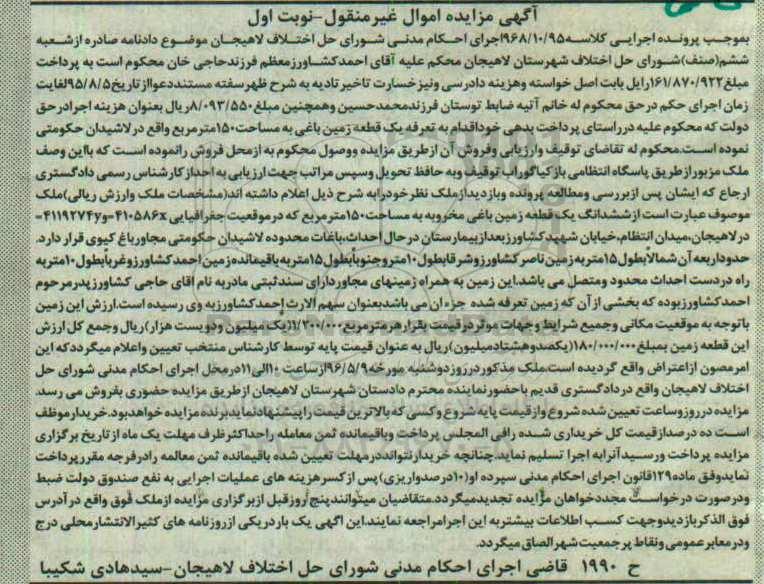 آگهی مزایده اموال غیرمنقول-نوبت اول
بموجب پرونده اجرایی کلاسه ۹۶۸/۱۰/۹۵اجرای احکام مدنی شورای حل اختلاف لاهیجان موضوع دادنامه صادره ازشعبه
ششم(صنف)شورای حل اختلاف شهرستان لاهیجان محکم علیه آقای احمدکشاورزمعظم فرزندحاجی خان محکوم است به پرداخت
مبلغ۱۶۱/۸۷۰/۹۲۲رایل بابت اصل خواسته وهزینه دادرسی ونیزخسارت تاخیرتادیه به شرح ظهرسفته مستنددعوااز تاریخ۹۵/۸/۵لغایت
زمان اجرای حکم درحق محکوم له خانم آتیه ضابط توستان فرزندمحمدحسین وهمچنین مبلغ۸/۰۹۳/۵۵۰ریال بعنوان هزینه اجرادرحق
دولت که محکوم علیه درراستای پرداخت بدهی خوداقدام به تعرفه یک قطعه زمین باغی به مساحت۱۵۰مترمربع واقع در لاشیدان حکومتی
نموده است.محکوم له تقاضای توقیف وارزیابی وفروش آن ازطریق مزایده ووصول محکوم به ازمحل فروش رانموده است که بااین وصف
ملک مزبورازطریق پاسگاه انتظامی بازکیاگوراب توقیف وبه حافظ تحویل وسپس مراتب جهت ارزیابی به احدازکارشناس رسمی دادگستری
ارجاع که ایشان پس ازبررسی ومطالعه پرونده وبازدیدازملک نظرخودرابه شرح ذیل اعلام داشته اند(مشخصات ملک وارزش ریالی)ملک
موصوف عبارت است ازششدانگ یک قطعه زمین باغی مخروبه به مساحت۱۵۰مترمربع که درموقعیت جغرافیایی ۴۱۰۵۸۶x-و۴۱۱۹۲۷۴y-
درلاهیجان،میدان انتظام،خیابان شهیدکشاورزبعدازبیمارستان درحال احداث،باغات محدوده لاشیدان حکومتی مجاورباغ کیوی قرار دارد.
حدوداربعه آن شمالاًبطول۱۵متربه زمین ناصرکشاورزوشرقابطول۱۰متروجنوباًبطول۱۵متربه باقیمانده زمین احمدکشاورزوغرباًبطول۱۰متربه
راه دردست احداث محدود ومتصل می باشد.این زمین به همراه زمینهای مجاوردارای سندثبتی مادربه نام اقای حاجی کشاورزپدرمرحوم
احمدکشاورزبوده که بخشی ازآن که زمین تعرفه شده جزءان می باشدبعنوان سهم الارث احمدکشاورزبه وی رسیده است.ارزش این زمین
باتوجه به موقعیت مکانی وجمیع شرایط وجهات موثردرقیمت بقرارهرمترمربع۱/۲۰۰/۰۰۰(یک میلیون ودویست هزار)ریال وجمع کل ارزش
این قطعه زمین بمبلغ۱۸۰/۰۰۰/۰۰۰(یکصدوهشتادمیلیون)ریال به عنوان قیمت پایه توسط کارشناس منتخب تعیین واعلام میگرددکه این
امرمصون ازاعتراض واقع گردیده است.ملک مذکوردرروزدوشنبه مورخه۹۶/۵/۹ازساعت ۱۰الی۱۱درمحل اجرای احکام مدنی شورای حل
اختلاف لاهیجان واقع دردادگستری قدیم باحضورنماینده محترم دادستان شهرستان لاهیجان ازطریق مزایده حضوری بفروش می رسد.
مزایده درروزوساعت تعیین شده شروع وازقیمت پایه شروع وکسی که بالاترین قیمت راپیشنهادنمایدبرنده مزایده خواهدبود.خریدارموظف
است ده درصدازقیمت کل خریداری شده رافی المجلس پرداخت وباقیمانده ثمن معامله راحداکثرظرف مهلت یک ماه ازتاریخ برگزاری
مزایده پرداخت ورسیدآنرابه اجرا تسلیم نماید.چنانچه خریدارنتوانددرمهلت تعیین شده باقیمانده ثمن معالمه رادرفرجه مقررپرداخت
نمایدوفق ماده۱۲۹قانون اجرای احکام مدنی سپرده او(۱۰درصدواریزی)پس ازکسرهزینه های عملیات اجرایی به نفع صندوق دولت ضبط
ودرصورت درخواست مجددخواهان مزایده تجدیدمیگردد.متقاضیان میتوانندپنج روزقبل ازبرگزاری مزایده ازملک فوق واقع درآدرس
فوق الذکربازدیدوجهت کسب اطلاعات بیشتربه این اجرامراجعه نمایند.این اگهی یک باردریکی ازروزنامه های کثیرالانتشارمحلی درج
ودرمعابرعمومی ونقاط پرجمعیت شهرالصاق میگردد.
ح ۱۹۹۰ قاضی اجرای احکام مدنی شورای حل اختلاف لاهیجان-سیدهادی شکیبا